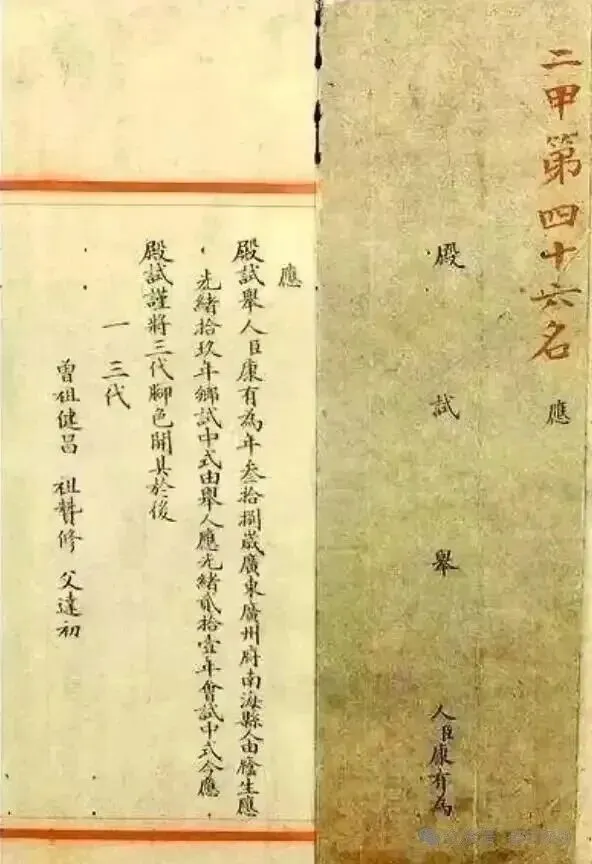 二甲第四十六名
應
殿試舉人臣康有為
應
殿試舉人臣康有為年叁拾捌歲廣東廣州府南海縣人由廕生應
光緒拾玖年鄉試中式由舉人應光緒貳拾壹年會試中式今應
殿試謹將三代腳色開具於後
一三代
曾祖健昌 祖贊修 父達初